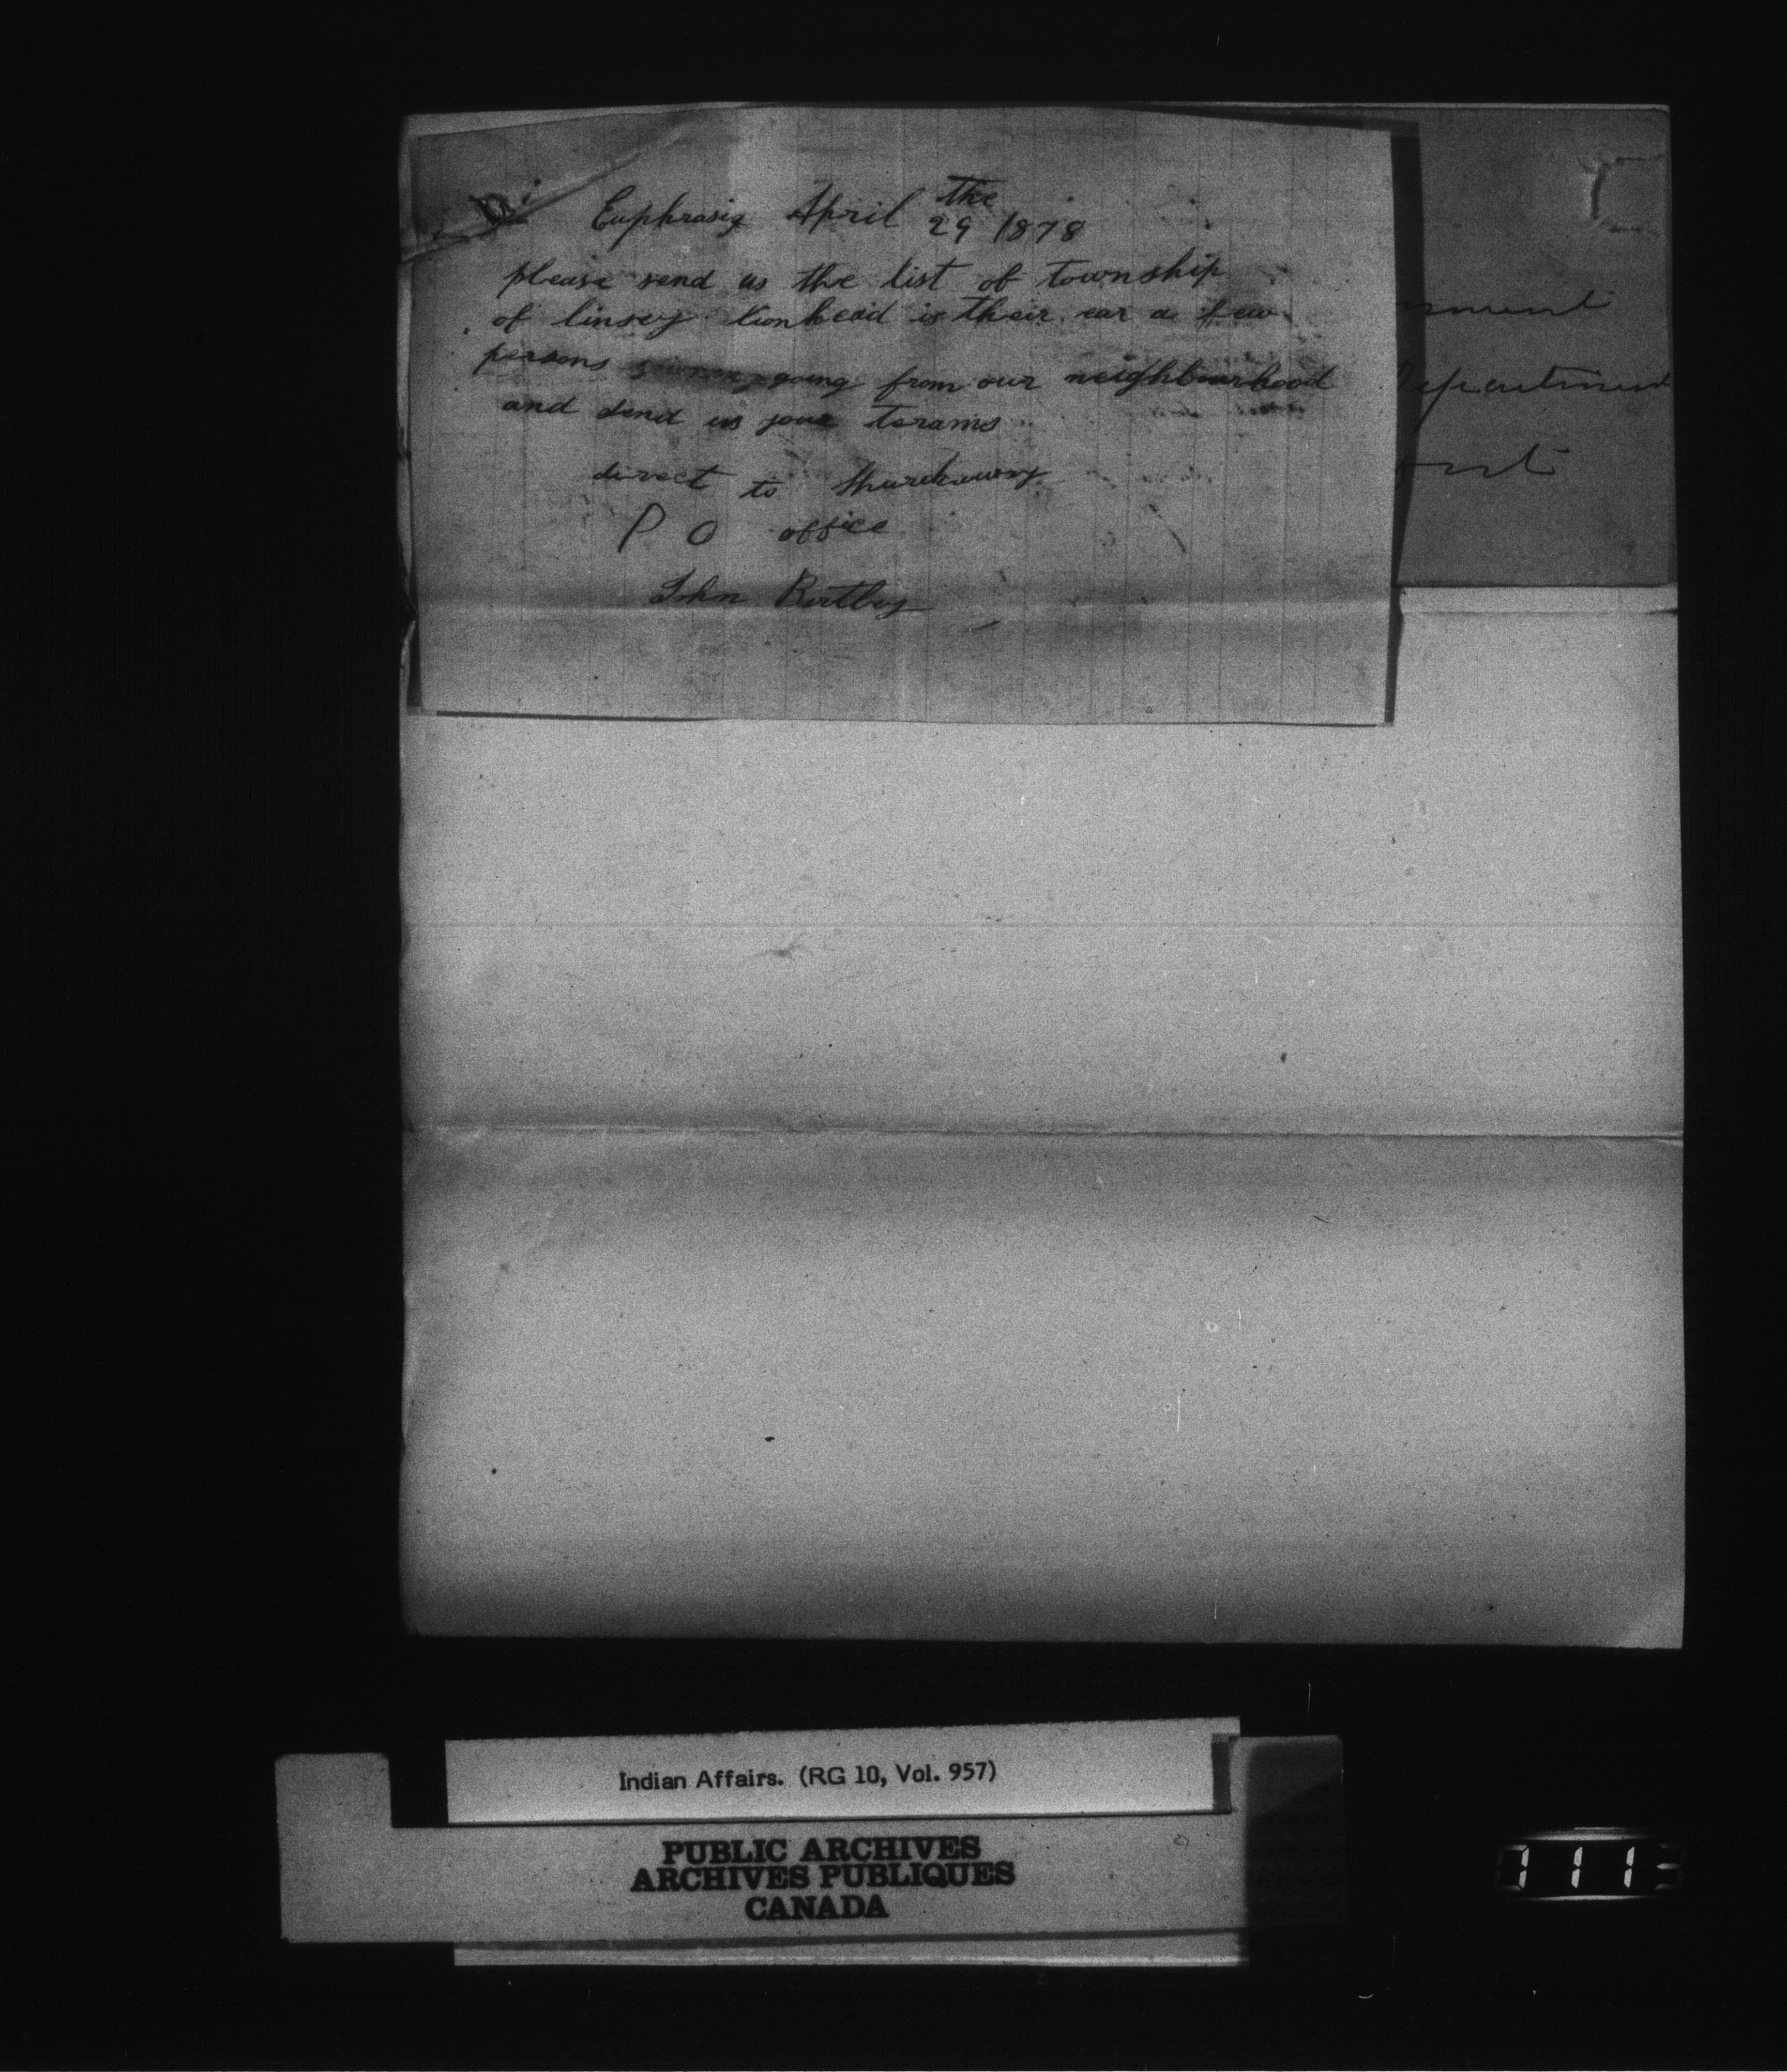 Euphrasia April the 29 1878
please send us the list of township
of linsey Lionhead is their ear a few
persons going from our neighbourhood
and send us your terams
direct to
P O office
John
nment
Department
Indian Affairs. (RG 10, Vol. 957)
PUBLIC ARCHIVES
ARCHIVES PUBLIQUES
CANADA